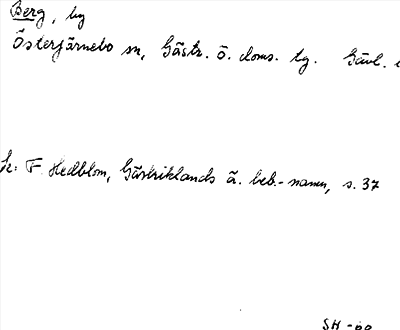 Berg, by
Österfärnebo sn, Gästr. ö. doms. tg. Gävl.
k: F. Hedblom, Gästriklands ä. beb.-namn, s. 37
SH